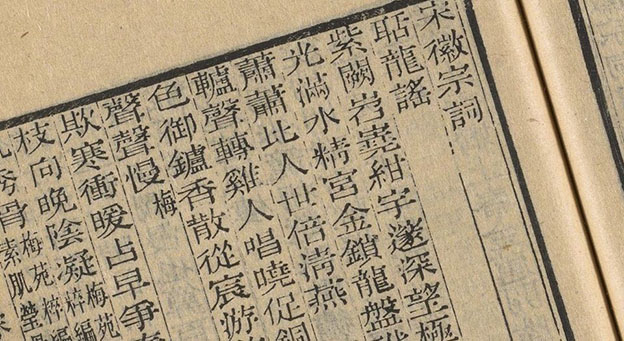 宋徽宗詞
聒龍謠
紫闕岧嶤紺宇邃深望極
光滿水精宮金鎖龍盤
蕭蕭比人世倍清燕
轤聲轉雞人唱曉促銅
色御鑪香散從宸游
聲聲慢 梅
欺寒衝暖占早爭
枝向晚陰凝 梅苑 粹編
秀骨 梅苑粹編 素肌瑩